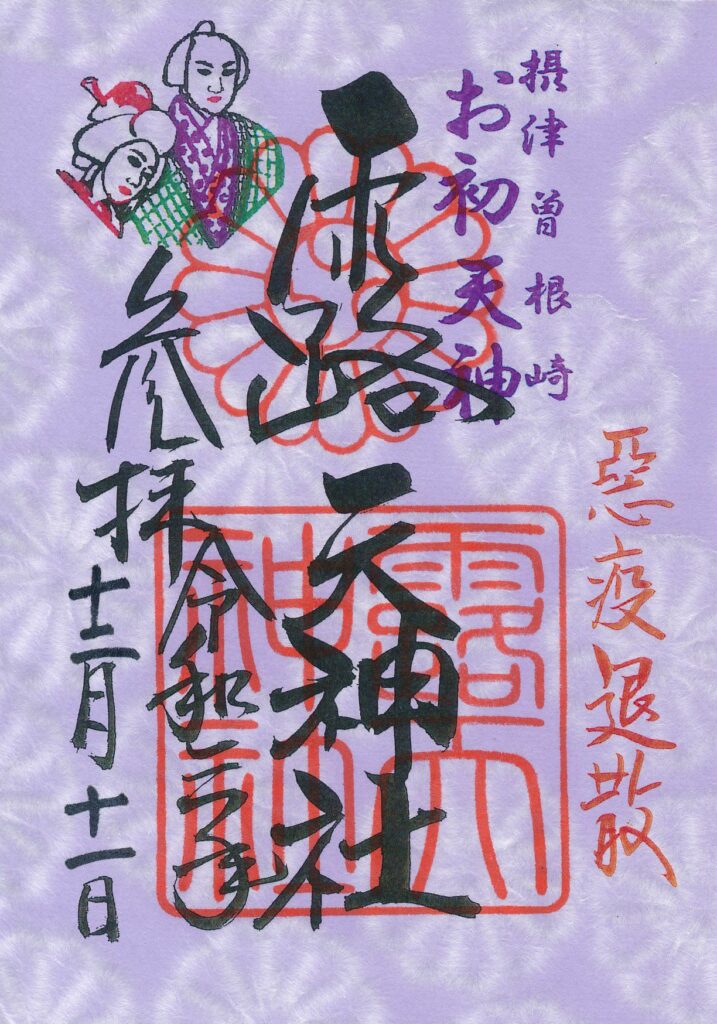 惡疫退散
摂津曽根崎
お初天神
露天神社
露天
神社
令和 年
参拝
十二月十一日